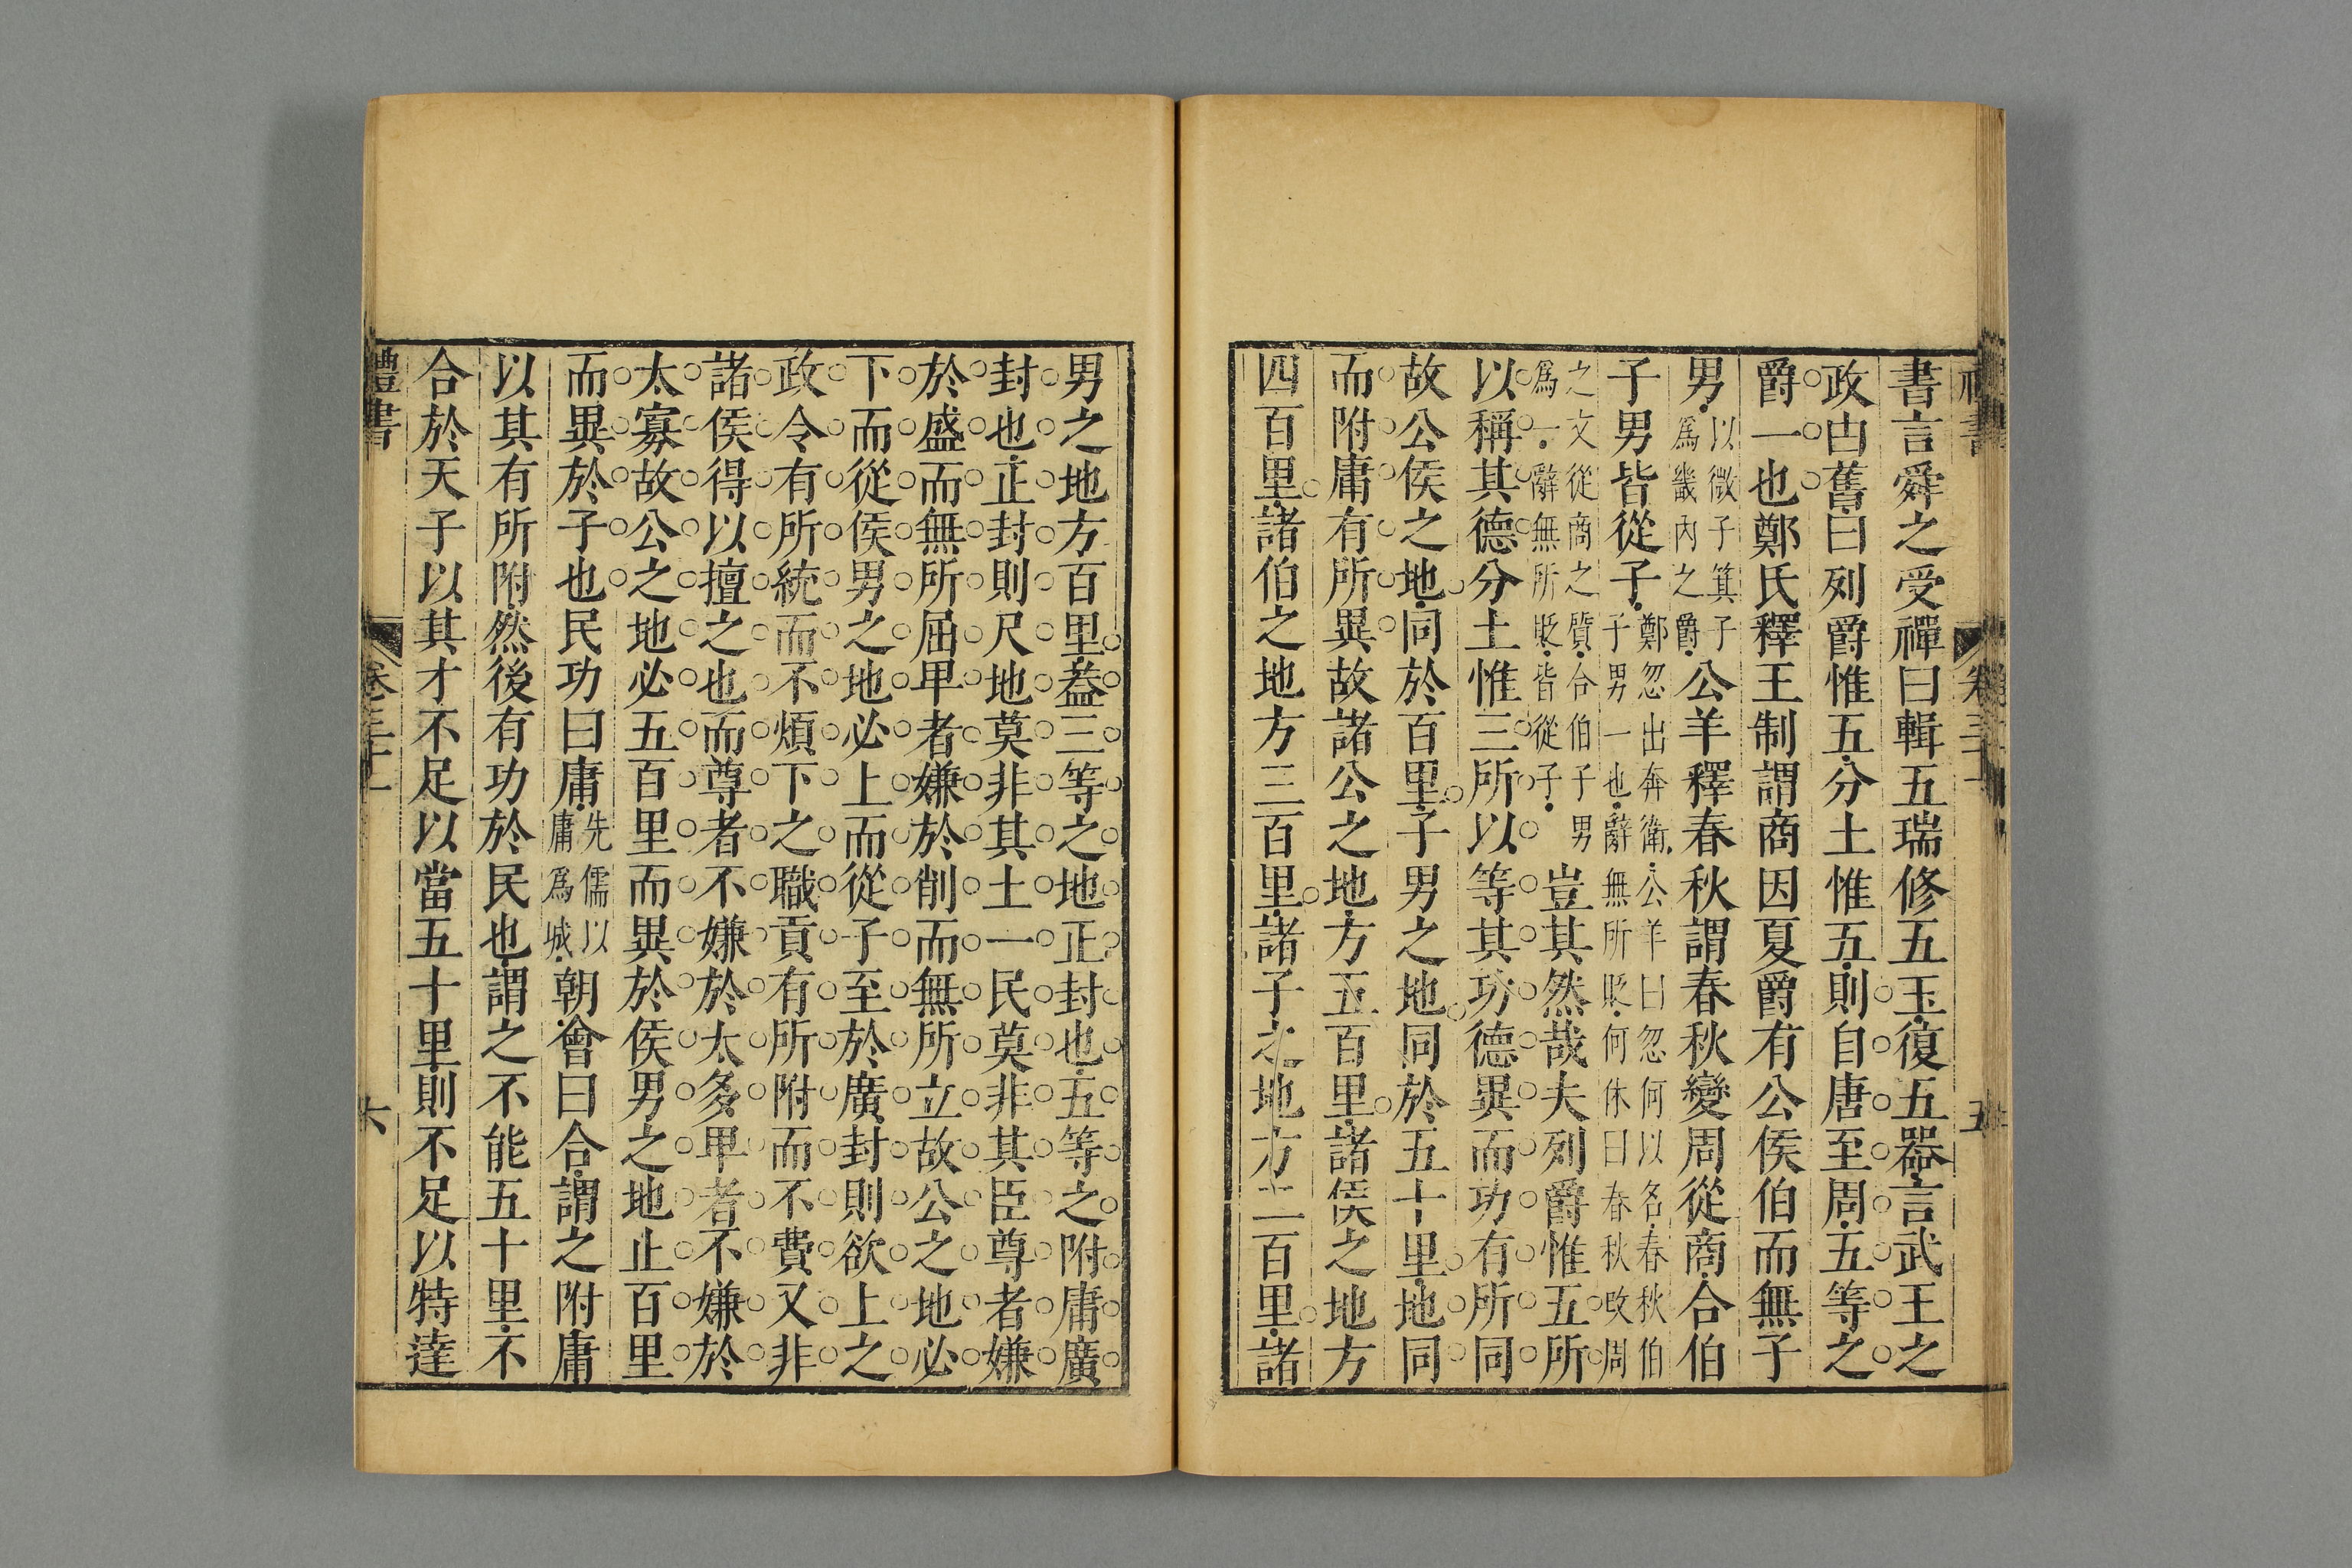 書言舜之受禪曰輯五瑞修五玉復五器言武王之
政由舊曰列爵惟五分土惟五則自唐至周五等之
爵一也鄭氏釋王制謂商因夏爵有公侯伯而無子
男以微子箕子爲畿內之爵公羊釋春秋謂春秋變周從商合伯
子男皆從子鄭忽出奔衛公羊曰忽何以名春秋伯子男一也辭無所貶何休曰春秋改周
之文從商之質合伯子男爲一辭無所貶皆從子豈其然哉夫列爵惟五所
以稱其德分土惟三所以等其功德異而功有所同
故公侯之地同於百里子男之地同於五十里地同
而附庸有所異故諸公之地方五百里諸侯之地方
四百里諸伯之地方三百里諸子之地方二百里諸
男之地方百里葢三等之地正封也五等之附庸廣
封也正封則尺地莫非其土一民莫非其臣尊者嫌
於盛而無所屈卑者嫌於削而無所立故公之地必
下而從侯男之地必上而從子至於廣封則欲上之
政令有所統而不煩下之職貢有所附而不費又非
諸侯得以擅之也而尊者不嫌於太多卑者不嫌於
太寡故公之地必五百里而異於侯男之地止百里
而異於子也民功曰庸先儒以庸爲城朝會曰合謂之附庸
以其有所附然後有功於民也謂之不能五十里不
合於天子以其才不足以當五十里則不足以特達
禮書 卷三十一 六